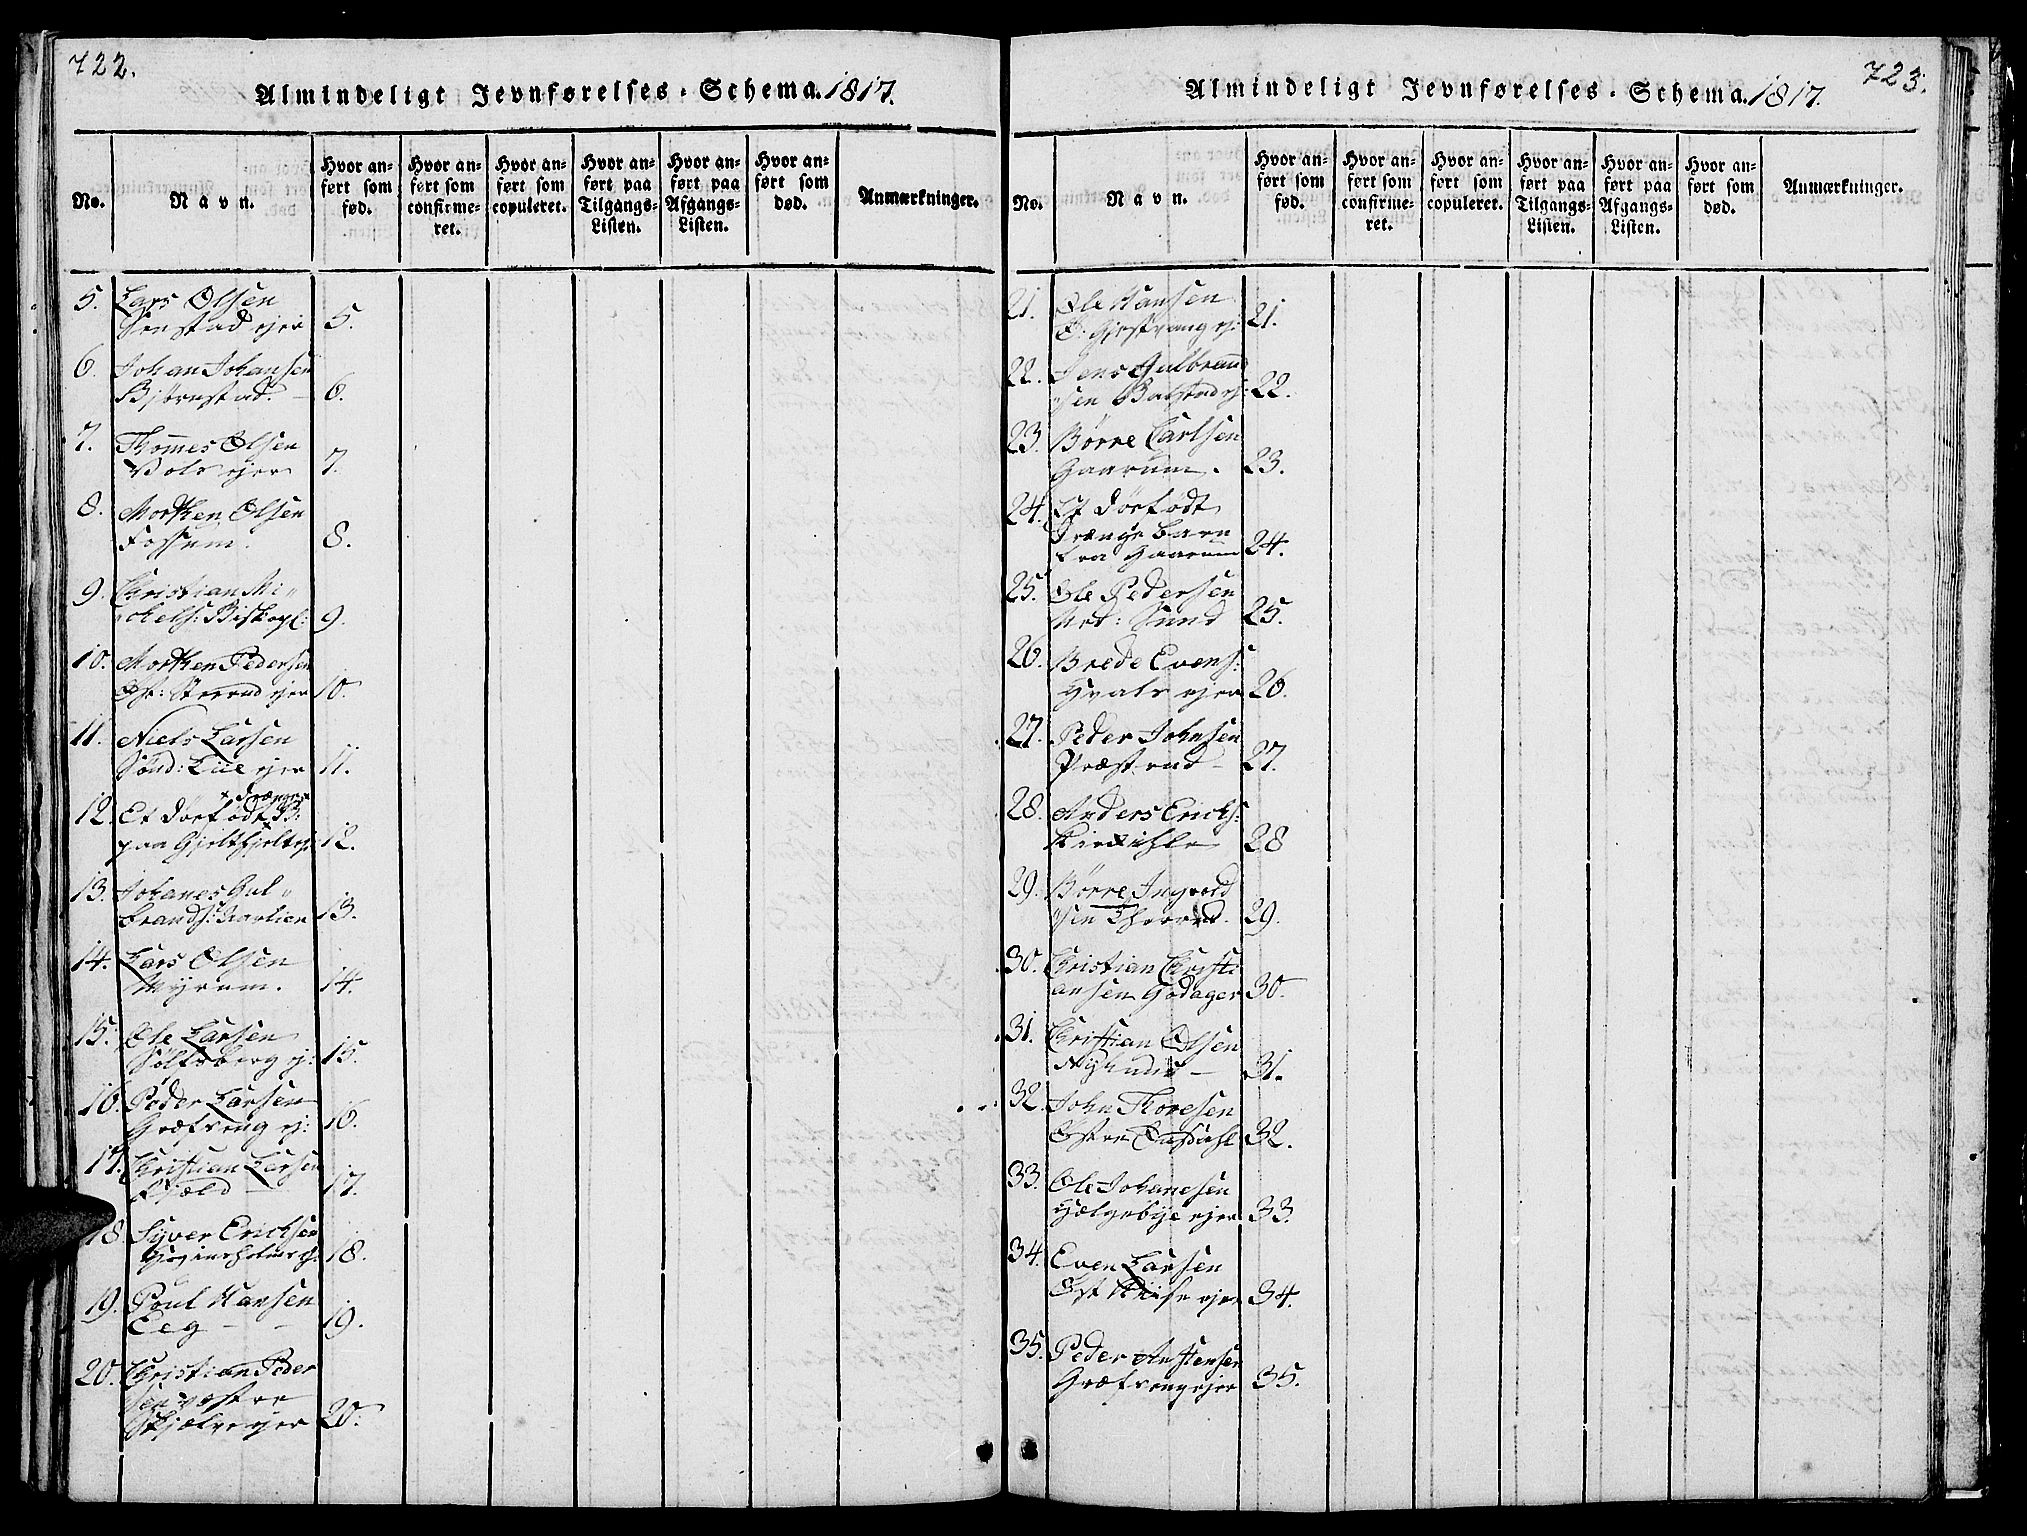 722.
Almindeligt Jevnførelses-Schema. 1817.
No.
Navn.
Hvor anført som fød.
Hvor anført som confirmeret.
Hvor anført som copuleret.
Hvor anført paa Tilgangs-Listen.
Hvor anført paa Afgangs-Listen.
Hvor anført som død.
Anmærkninger.
5. Lars Olsen
ejer 5.
6. Johan Johansen
Bjørnstad. 6.
7. Thommes Olsen
Vols ejer 7.
8. Morthen Olsen
Fossum. 8.
9. Christian Mi„
chels: Biskopl: 9.
10. Morthen Pedersen
Øst: ejer 10.
11. Niels Larsen
Sønd: Liie ejer 11.
12. Et dødfødt Drænge B:
paa 12.
13. Johanes Gul„
brands: 13.
14. Lars Olsen
Myrum. 14.
15. Ole Larsen
Sølfsberg ej: 15.
16. Peder Larsen
Græfseng ej: 16.
17. Christian Larsen
Kjæld 17.
18. Syver Erichsen
18.
19. Poul Hansen
Eeg 19.
20. Christian Peder
sen vestre
Skjælve ejer 20.
723.
Almindeligt Jevnførelses-Schema. 1817.
No.
Navn.
Hvor anført som fød.
Hvor anført som confirmeret.
Hvor anført som copuleret.
Hvor anført paa Tilgangs-Listen.
Hvor anført paa Afgangs-Listen.
Hvor anført som død.
Anmærkninger.
21. Ole Hansen
Ø: Gjestvang ej: 21.
22. Jens Gulbrand
sen 22.
23. Børre Carlsen
Gaarum. 23.
24. Et dørfødt
Drænge barn
fra Gaarum 24.
25. Ole Pedersen
Ned: Sund 25.
26. Brede Evens:
Hvals ejer 26.
27. Peder Johnsen
Præstrud 27.
28. Anders Erichs:
28
29. Børre Ingvord
sen 29.
30. Christian Christi
ansen Godager 30.
31. Christian Olsen
Nylund 31.
32. John Thoresen
Østre 32.
33. Ole Johanesen
Hælgebye ejer 33.
34. Even Larsen
Øst ejer 34.
35. Peder Austensen
Græfseng ejer 35.